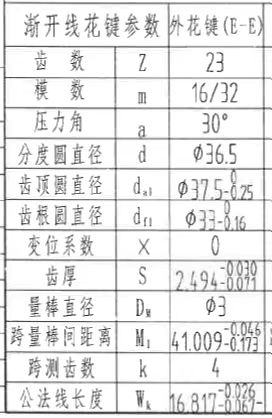 渐开线花键参数 外花键(E-E)
齿数 Z 23
模数 m 16/32
压力角 a 30°
分度圆直径 d Φ36.5
齿顶圆直径 da1 Φ37.5 0 -0.25
齿根圆直径 df1 Φ33 0 -0.16
变位系数 X 0
齿厚 S 2.494 -0.030 -0.071
量棒直径 DM Φ3
跨量棒间距离 M1 41.009 -0.046 -0.173
跨测齿数 k 4
公法线长度 Wk 16.817 -0.026